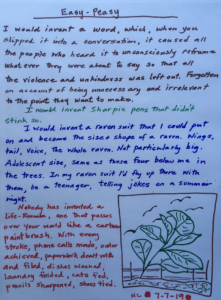 Easy-Peasy
I would invent a word, which, when you
slipped it into a conversation, it caused all
the people who heard it to unconsciously reframe
whatever they were about to say so that all
the violence and unkindness was left out. Forgotten
on account of being unnecessary and irrelevant
to the point they want to make.
I would invent Sharpie pens that didn't
stink so.
I would invent a raven suit that I could put
on and become the size & shape of a raven. Wings,
tail, voice, the whole raven. Not particularly big.
Adolescent size, same as those four below me in
the trees. In my raven suit I'd fly up there with
them, be a teenager, telling jokes on a summer
night.
Nobody has invented a
Life-Roomba, one that passes
over your world like a cartoon
paintbrush. With every
stroke, phone calls made, order
achieved, paperwork dealt with
and filed, dishes cleaned,
laundry folded, cats fed,
pencils sharpened, shoes tied.
7-7-19